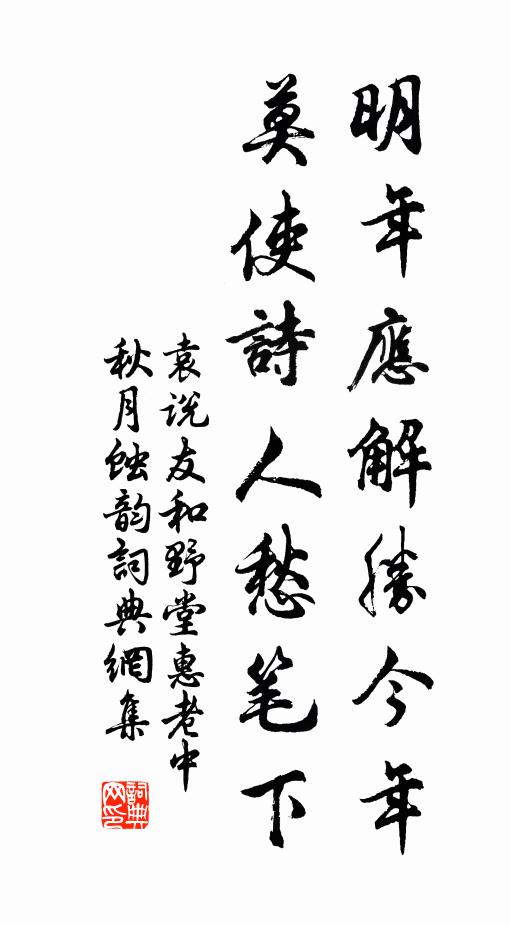 明年應解勝今年
莫使詩人愁笔下
袁说友和野堂惠老中
秋月蝕韵詞典網集
詞典网印